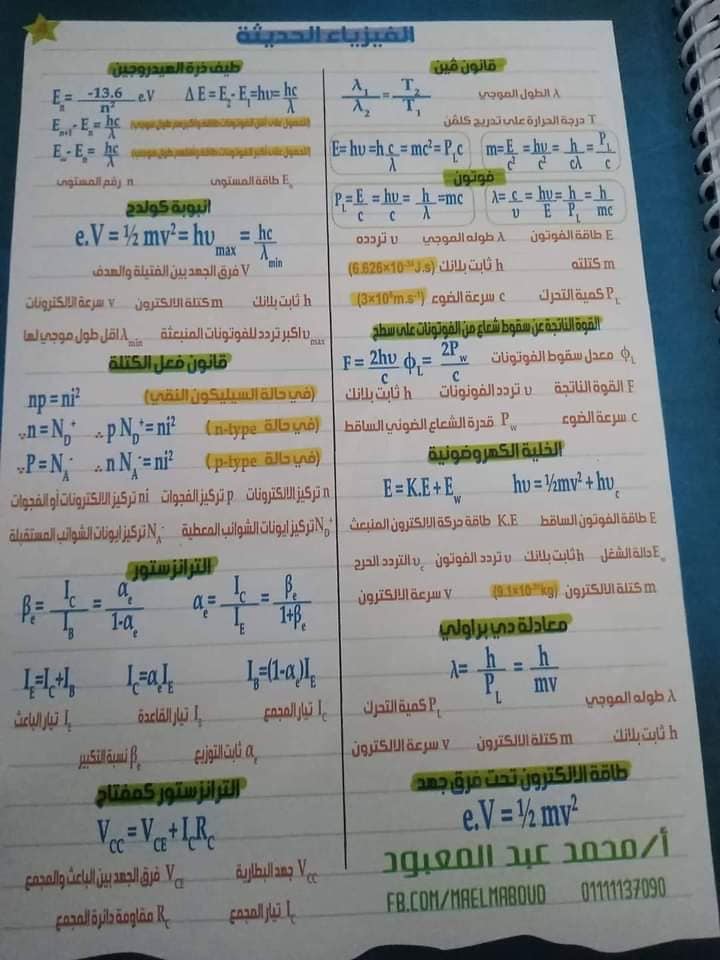 الفيزياء الحديثة
قانون ڤين
λ₁/λ₂ = T₂/T₁
λ الطول الموجي
T درجة الحرارة على تدريج كلڤن
E = hυ = h c/λ = mc² = P_L c
m = E/c² = hυ/c² = h/cλ = P_L/c
فوتون
P_L = E/c = hυ/c = h/λ = mc
λ = c/υ = hυ/E = h/P_L = h/mc
E طاقة الفوتون λ طوله الموجي υ تردده
m كتلته h ثابت بلانك (6.626×10⁻³⁴J.s)
P_L كمية التحرك c سرعة الضوء (3×10⁸m.s⁻¹)
القوة الناتجة عن سقوط شعاع من الفوتونات على سطح
F = 2hυ/c ϕ_L = 2P_w/c
ϕ_L معدل سقوط الفوتونات
F القوة الناتجة υ تردد الفوتونات h ثابت بلانك
c سرعة الضوء P_w قدرة الشعاع الضوئي الساقط
الخلية الكهروضوئية
E = K.E + E_w hυ = ½mv² + hυ_c
E طاقة الفوتون الساقط K.E طاقة حركة الالكترون المنبعث
E_w دالة الشغل h ثابت بلانك υ تردد الفوتون υ_c التردد الحرج
m كتلة الالكترون (9.1×10⁻³¹kg) v سرعة الالكترون
معادلة دي براولي
λ = h/P_L = h/mv
λ طوله الموجي P_L كمية التحرك
h ثابت بلانك m كتلة الالكترون v سرعة الالكترون
طاقة الالكترون تحت فرق جهد
e.V = ½ mv²
أ/محمد عبد المعبود
FB.COM/MAELMABOUD 01111137090
طيف ذرة الهيدروجين
E_n = -13.6/n² e.V ΔE = E₂ - E₁ = hυ = hc/λ
E_n+1 - E_n = hc/λ (للحصول على أقل الفوتونات طاقة واكبرهم طول موجي)
E_∞ - E_n = hc/λ (للحصول على أكبر الفوتونات طاقة واقلهم طول موجي)
E_n طاقة المستوى n رقم المستوى
انبوبة كولدج
e.V = ½ mv² = hυ_max = hc/λ_min
V فرق الجهد بين الفتيلة والهدف
h ثابت بلانك m كتلة الالكترون v سرعة الالكترونات
υ_max اكبر تردد للفوتونات المنبعثة λ_min اقل طول موجي لها
قانون فعل الكتلة
np = ni² (في حالة السيليكون النقي)
∵ n = N_D⁺ ∴ p N_D⁺ = ni² (في حالة n-type)
∵ P = N_A⁻ ∴ n N_A⁻ = ni² (في حالة p-type)
n تركيز الالكترونات p تركيز الفجوات ni تركيز الالكترونات أو الفجوات
N_D⁺ تركيز ايونات الشوائب المعطية N_A⁻ تركيز ايونات الشوائب المستقبلة
الترانزستور
β_e = I_C/I_B = α_e/1-α_e α_e = I_C/I_E = β_e/1+β_e
I_E = I_C + I_B I_C = α_e I_E I_B = (1-α_e)I_E
I_C تيار المجمع I_B تيار القاعدة I_E تيار الباعث
α_e ثابت التوزيع β_e نسبة التكبير
الترانزستور كمفتاح
V_CC = V_CE + I_C R_C
V_CC جهد البطارية V_CE فرق الجهد بين الباعث والمجمع
I_C تيار المجمع R_C مقاومة دائرة المجمع